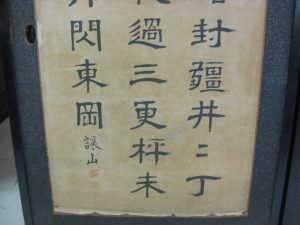 封疆井〻丁
過三更枰未
閃東岡
讓山